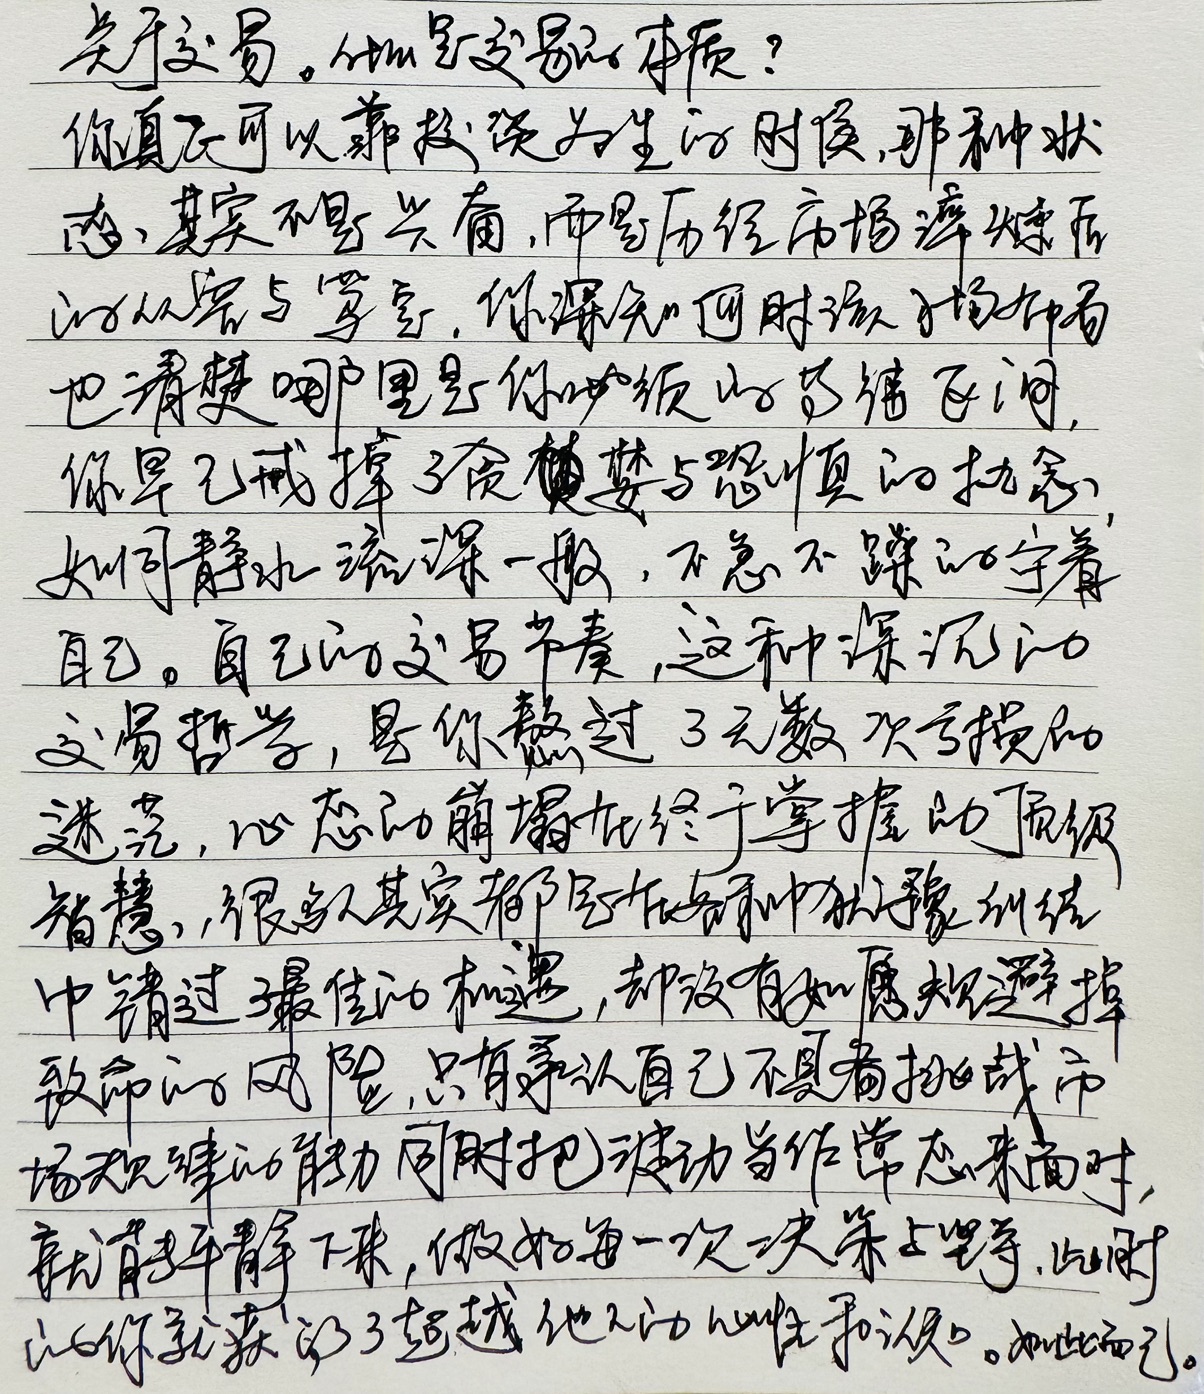 关于交易。什么是交易的本质?
你真正可以靠投资为生的时候,那种状
态、其实不是兴奋,而是历经市场淬炼后
的从容与笃定,你深知何时该扬帆
也清楚哪里是你必须的等待区间,
你早已戒掉了贪婪与恐惧的执念,
如同静水流深一般,不急不躁的守着
自己。自己的交易节奏,这种深沉的
交易哲学,是你熬过了无数次亏损的
迷茫,心态的崩塌在终于掌握的顶级
智慧,很多人其实都是在各种犹豫纠结
中错过了最佳的机遇,却没有如愿规避掉
致命的风险,只有承认自己不具备挑战市
场规律的能力同时把波动当作常态来面对,
就能平静下来,做好每一次决策与坚守,此时
的你就获的了超越他人的心性和认知。如此而已。